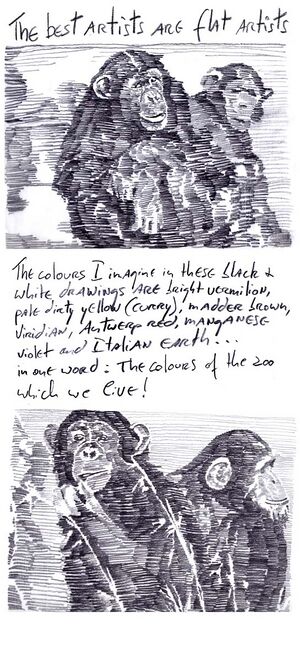 The best artists are flat artists
The colours I imagine in these black &
white drawings are bright vermilion,
pale dirty yellow (curry), madder brown,
viridian, Antwerp red, manganese
violet and Italian earth...
in one word: The colours of the zoo
which we live!